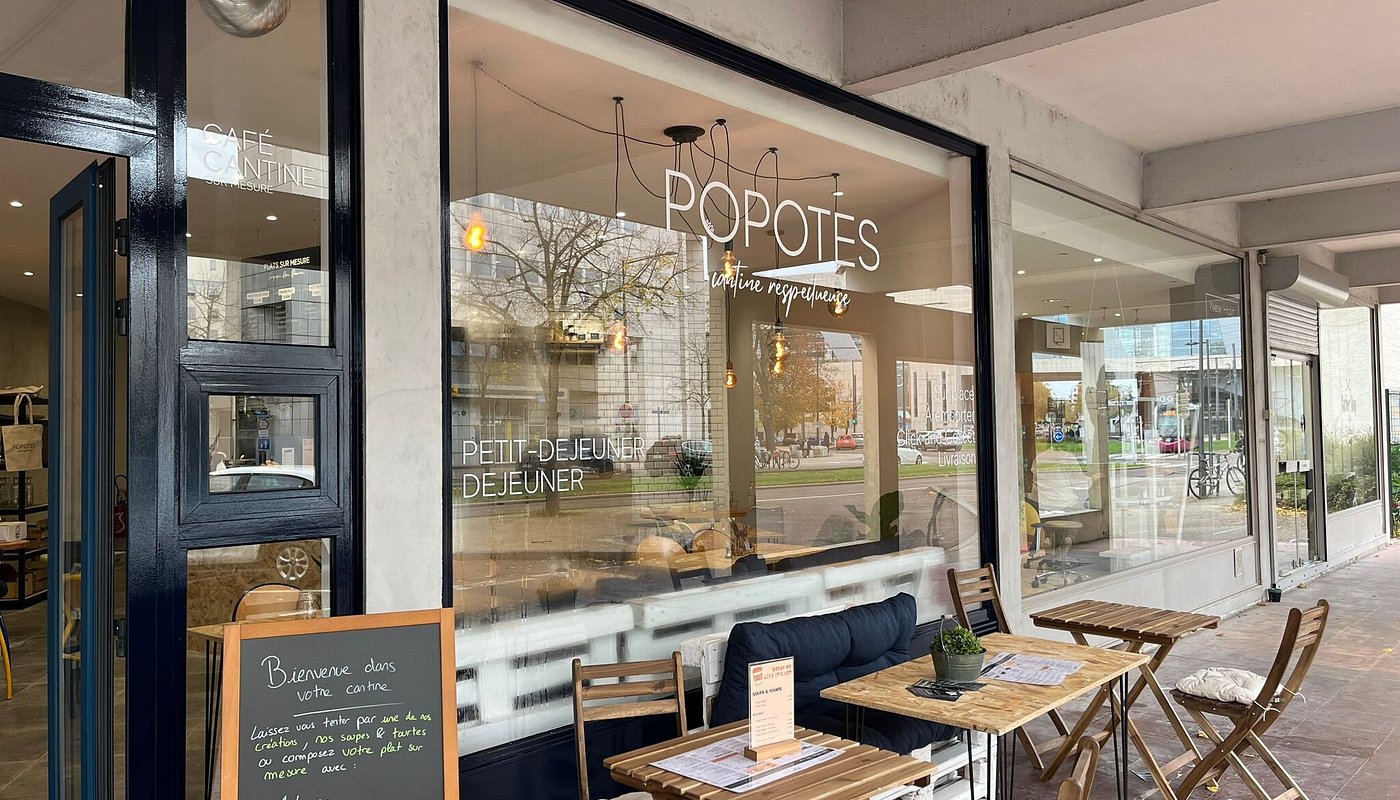 CAFÉ
CANTINE
SUR MESURE
PLATS SUR MESURE
POPOTES
cantine respectueuse
PETIT-DEJEUNER
DEJEUNER
Sur place
A emporter
Click and Collect
Livraison
POPOTES
Bienvenue dans
votre cantine
Laissez vous tenter par une de nos
créations, nos soupes & tartes
ou composez votre plat sur
mesure avec :
DRINK ME
LIKE IT'S HOT
SOUPE &